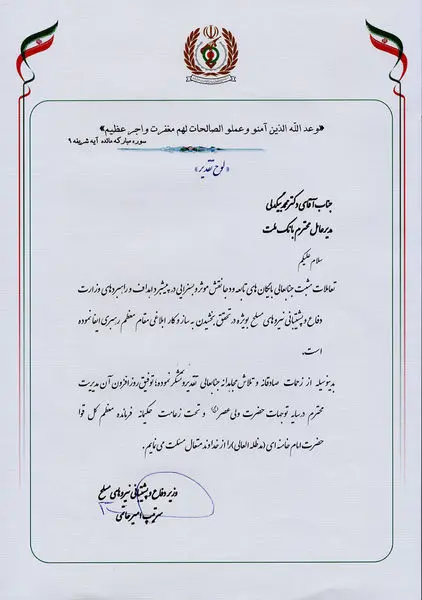 «وعد الله الذین آمنو وعملو الصالحات لهم مغفرت واجر عظیم»
سوره مبارکه مائده آیه شریفه ۹
«لوح تقدیر»
جناب آقای دکتر محمد بیگدلی
مدیرعامل محترم بانک ملت
سلام علیکم
تعاملات مثبت جنابعالی با یگان های تابعه ودجا نقش موثر و بسزایی در پیشبرد اهداف و راهبردهای وزارت
دفاع و پشتیبانی نیروهای مسلح بویژه در تحقق بخشیدن به ساز و کار ابلاغی مقام معظم رهبری ایفا نموده
است.
بدینوسیله از زحمات صادقانه و تلاش مجاهدانه جنابعالی تقدیر و تشکر نموده؛ توفیق روزافزون آن مدیریت
محترم درسایه توجهات حضرت ولی عصر(عج) و تحت زعامت حکیمانه فرمانده معظم کل قوا
حضرت امام خامنه ای (مدظله العالی) را از خداوند متعال مسئلت می نمایم.
وزیر دفاع و پشتیبانی نیروهای مسلح
سرتیپ امیر حاتمی